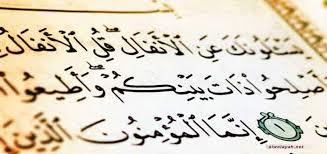 يَسْـَٔلُونَكَ عَنِ ٱلْأَنفَالِ ۖ قُلِ ٱلْأَنفَالُ
وَأَصْلِحُوا۟ ذَاتَ بَيْنِكُمْ ۖ وَأَطِيعُوا۟
١ إِنَّمَا ٱلْمُؤْمِنُونَ ٱلَّذِينَ
alwelayah.net